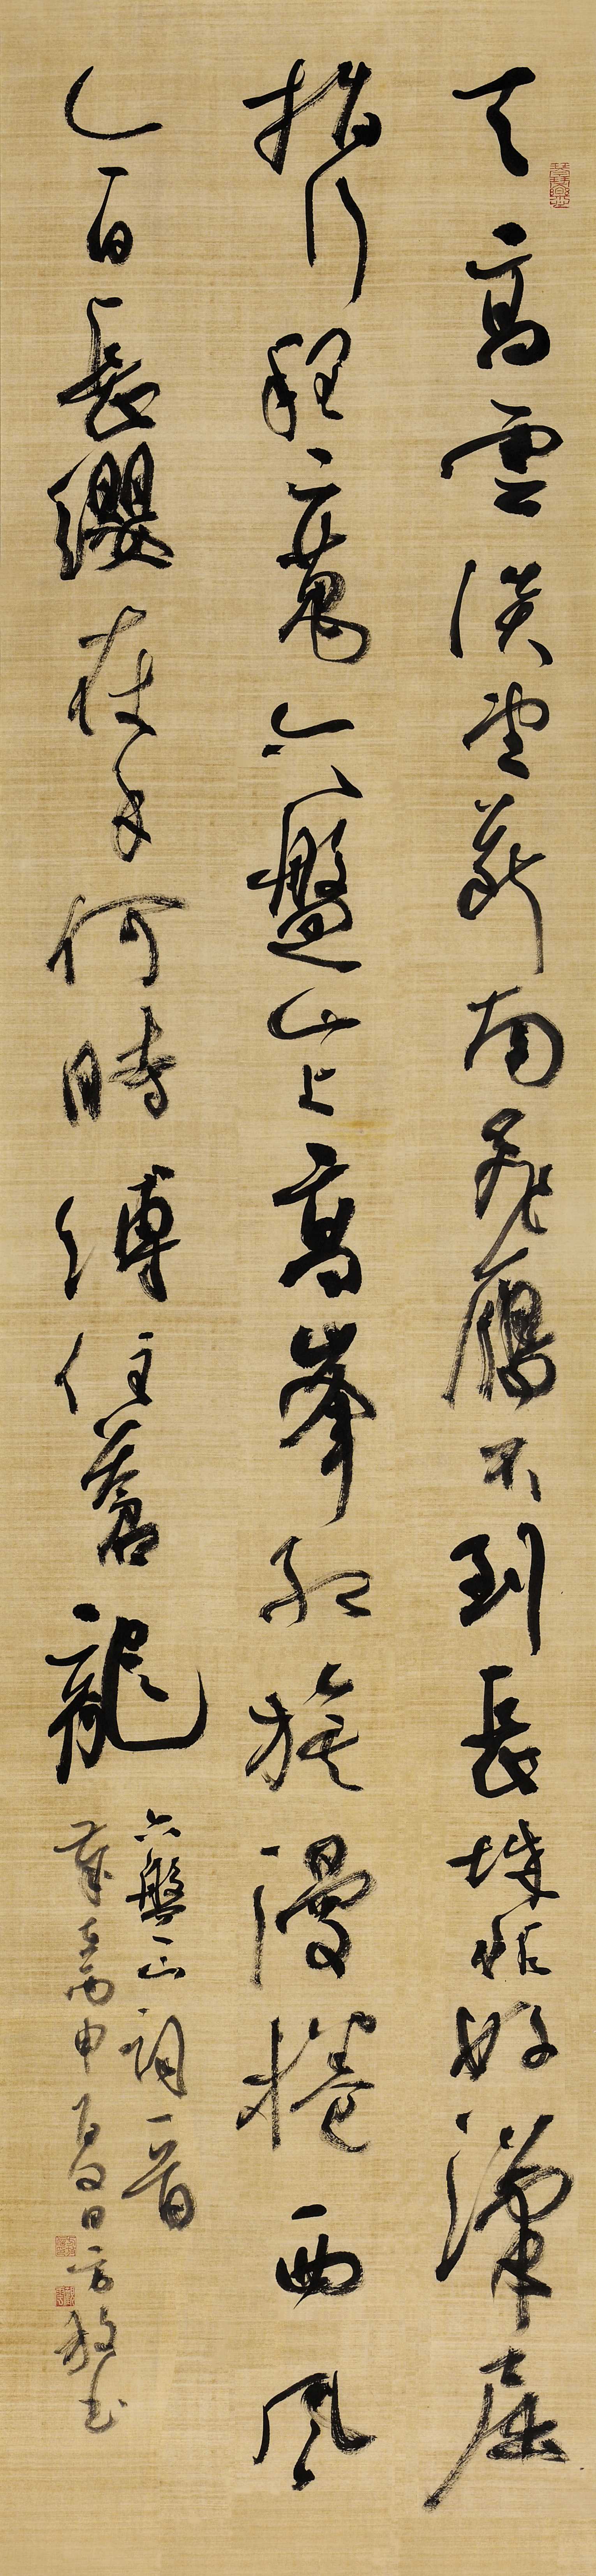 天高雲淡望斷南飛雁不到長城非好漢屈
指行程二萬六盤山上高峯紅旗漫捲西風
今日長纓在手何時縛住蒼龍
六盤山詞一首
歲在丙申夏日